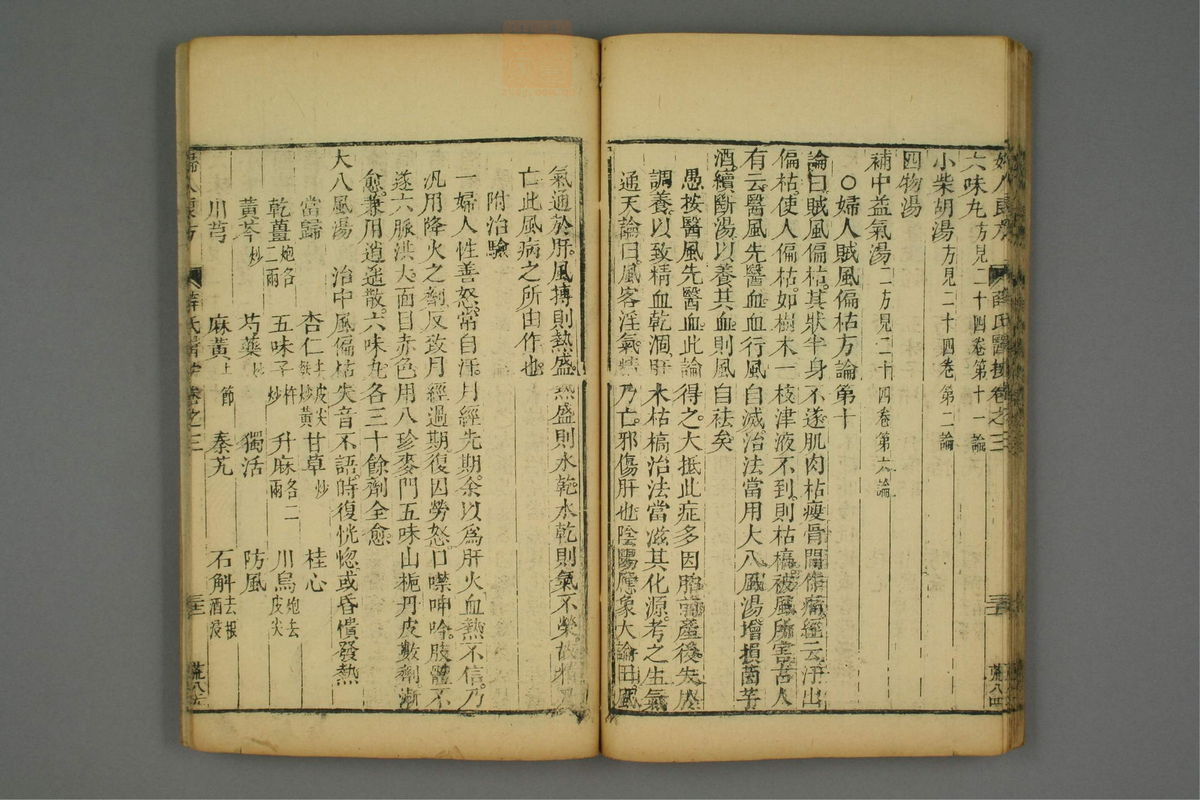 六味丸方見二十四卷第十一論
小柴胡湯方見二十四卷第二論
四物湯
補中益氣湯二方見二十四卷第六論
○婦人賊風偏枯方論第十
論曰賊風偏枯其狀半身不遂肌肉枯瘦骨間疼痛經云汗出
偏枯使人偏枯如樹木一枝津液不到則枯槁被風所害昔人
有云醫風先醫血血行風自滅治法當用大八風湯增損茵芋
酒續斷湯以養其血則風自祛矣
愚按醫風先醫血此論得之大抵此症多因胎前產後失於
調養以致精血乾涸肝木枯槁治法當滋其化源考之生氣
通天論曰風客淫氣精乃亡邪傷肝也陰陽應象大論曰風
氣通於肝風搏則熱盛熱盛則水乾水乾則氣不榮故精乃
亡此風病之所由作也
附治驗
一婦人性善怒常自汗月經先期余以爲肝火血熱不信乃
泛用降火之劑反致月經過期復因勞怒口噤呻吟肢體不
遂六脈洪大面目赤色用八珍麥門五味山梔丹皮數劑漸
愈兼用逍遥散六味丸各三十餘劑全愈
大八風湯 治中風偏枯失音不語時復恍惚或昏憒發熱
當歸 杏仁去皮尖麩炒黃 甘草炒 桂心
乾薑炮各二兩 五味子杵炒 升麻各二兩 川烏炮去皮尖
黃芩炒 芍藥炒 獨活 防風
川芎 麻黃去節 秦艽 石斛去根酒浸
婦人良方 薛氏醫按卷之三